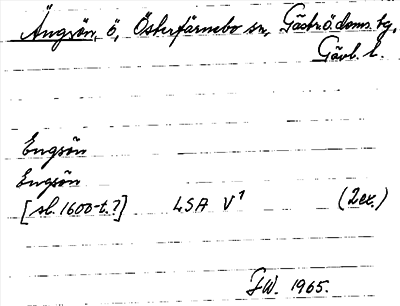 Ängsön, ö, Österfärnebo sn, Gästr. ö. doms. tg,
Gävl. l.
Engsön
Engsön
[sl. 1600-t.?] LSA V¹ (2 ex.)
FW. 1965.